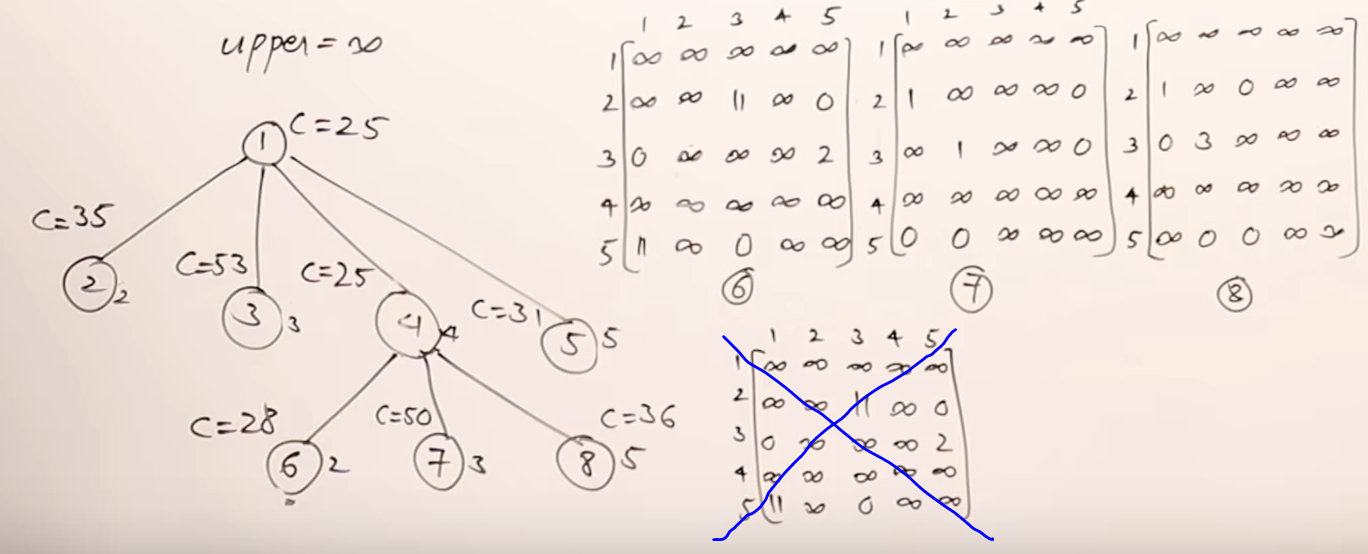 upper = ∞
1 C=25
C=35
2 2
C=53
3 3
C=25
4 4
C=31
5 5
C=28
6 2
C=50
7 3
C=36
8 5
1 2 3 4 5
1 ∞ ∞ ∞ ∞ ∞
2 ∞ ∞ 11 ∞ 0
3 0 ∞ ∞ ∞ 2
4 ∞ ∞ ∞ ∞ ∞
5 11 ∞ 0 ∞ ∞
6
1 2 3 4 5
1 ∞ ∞ ∞ ∞ ∞
2 1 ∞ ∞ ∞ 0
3 ∞ 1 ∞ ∞ 0
4 ∞ ∞ ∞ ∞ ∞
5 0 0 ∞ ∞ ∞
7
1 ∞ ∞ ∞ ∞ ∞
2 1 ∞ 0 ∞ ∞
3 0 3 ∞ ∞ ∞
4 ∞ ∞ ∞ ∞ ∞
5 ∞ 0 0 ∞ ∞
8
1 2 3 4 5
1 ∞ ∞ ∞ ∞ ∞
2 ∞ ∞ 11 ∞ 0
3 0 ∞ ∞ ∞ 2
4 ∞ ∞ ∞ ∞ ∞
5 11 ∞ 0 ∞ ∞